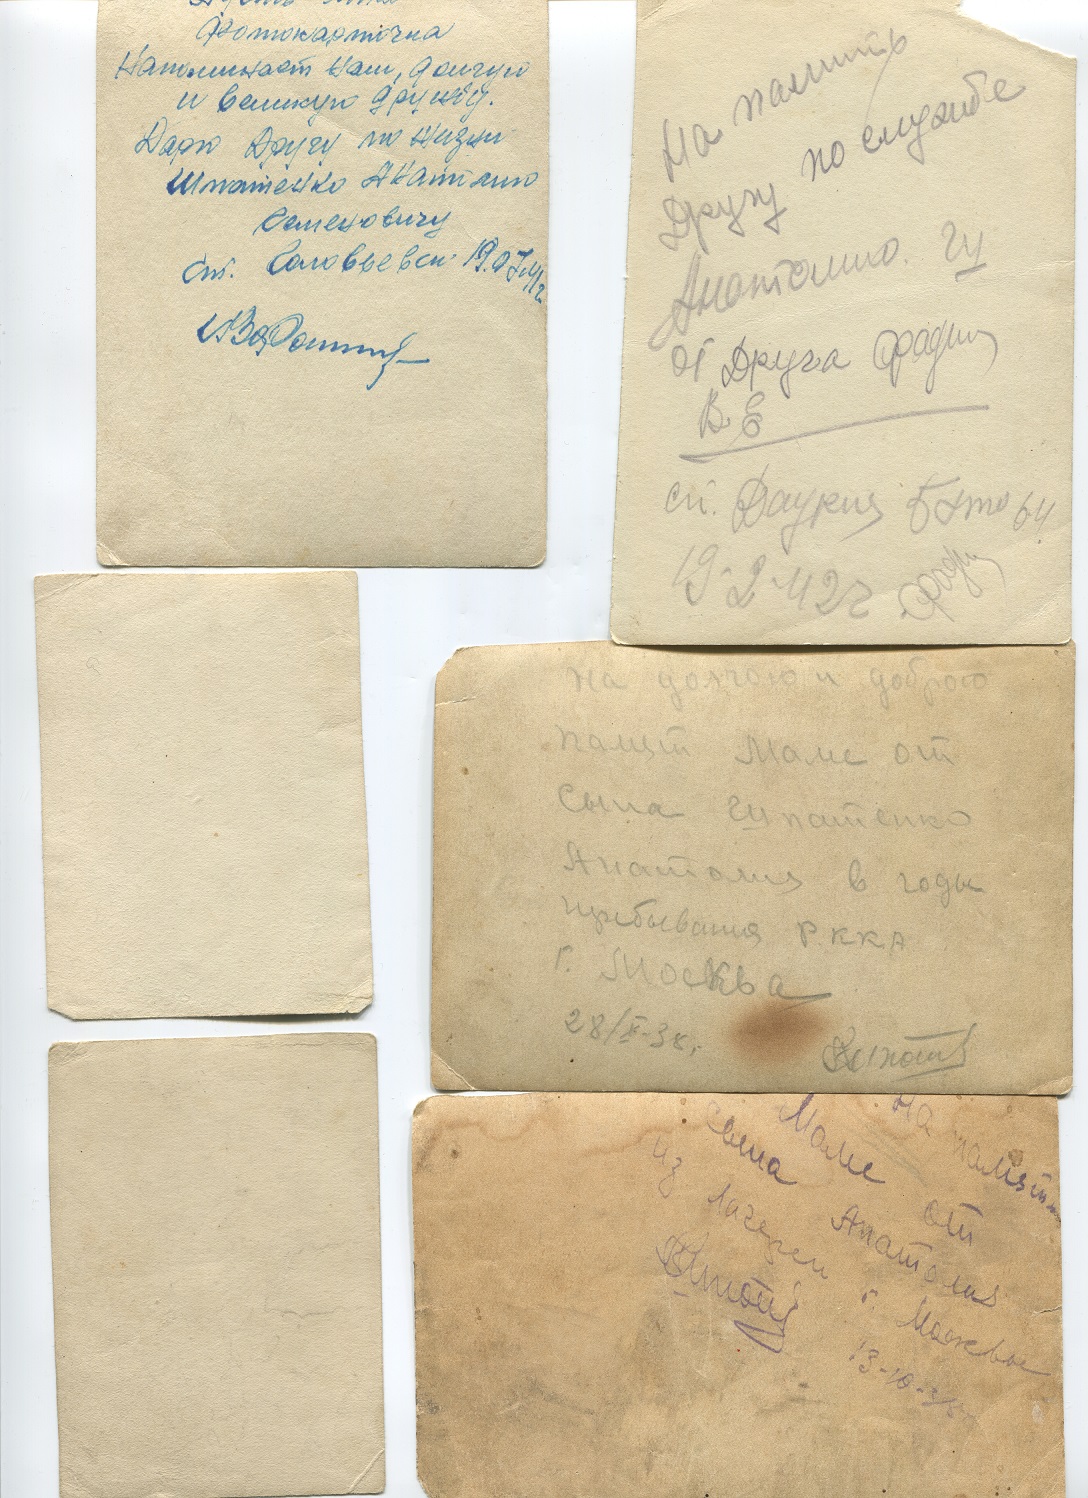 Фотокарточка
Напоминает нам, долгую
и великую дружбу.
Дарю Другу по жизни
Шпатенко Анатолию
Семеновичу
ст. Соловьевск 19.
На память
Другу по службе
Анатолию. Ш
от Друга
В. Е
ст. Даурия 64
19-2-42г
на долгою и доброю
памят Маме от
Сына Шпатенко
Анатолия в годы
прибывания РККА
г. Москва
28/X-38г.
На память
Маме от
сына Анатолия
из лагерей г. Москвы
13-10-